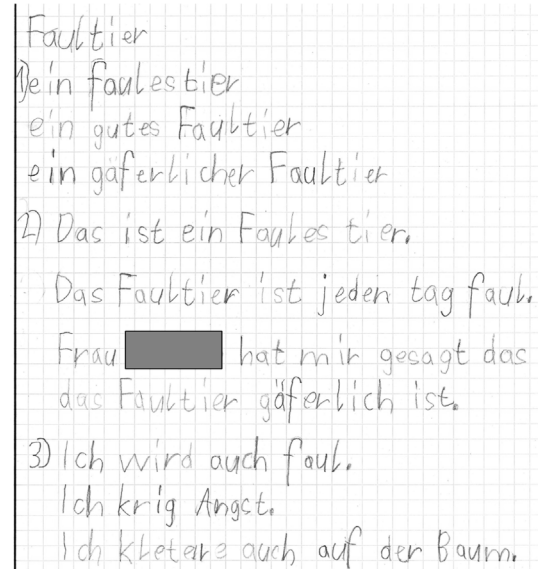 Faultier
1) ein faules tier
ein gutes Faultier
ein gäferlicher Faultier
2) Das ist ein Faules tier.
Das Faultier ist jeden tag faul.
Frau hat mir gesagt das
das Faultier gäferlich ist.
3) Ich wird auch faul.
Ich krig Angst.
Ich kletere auch auf der Baum.